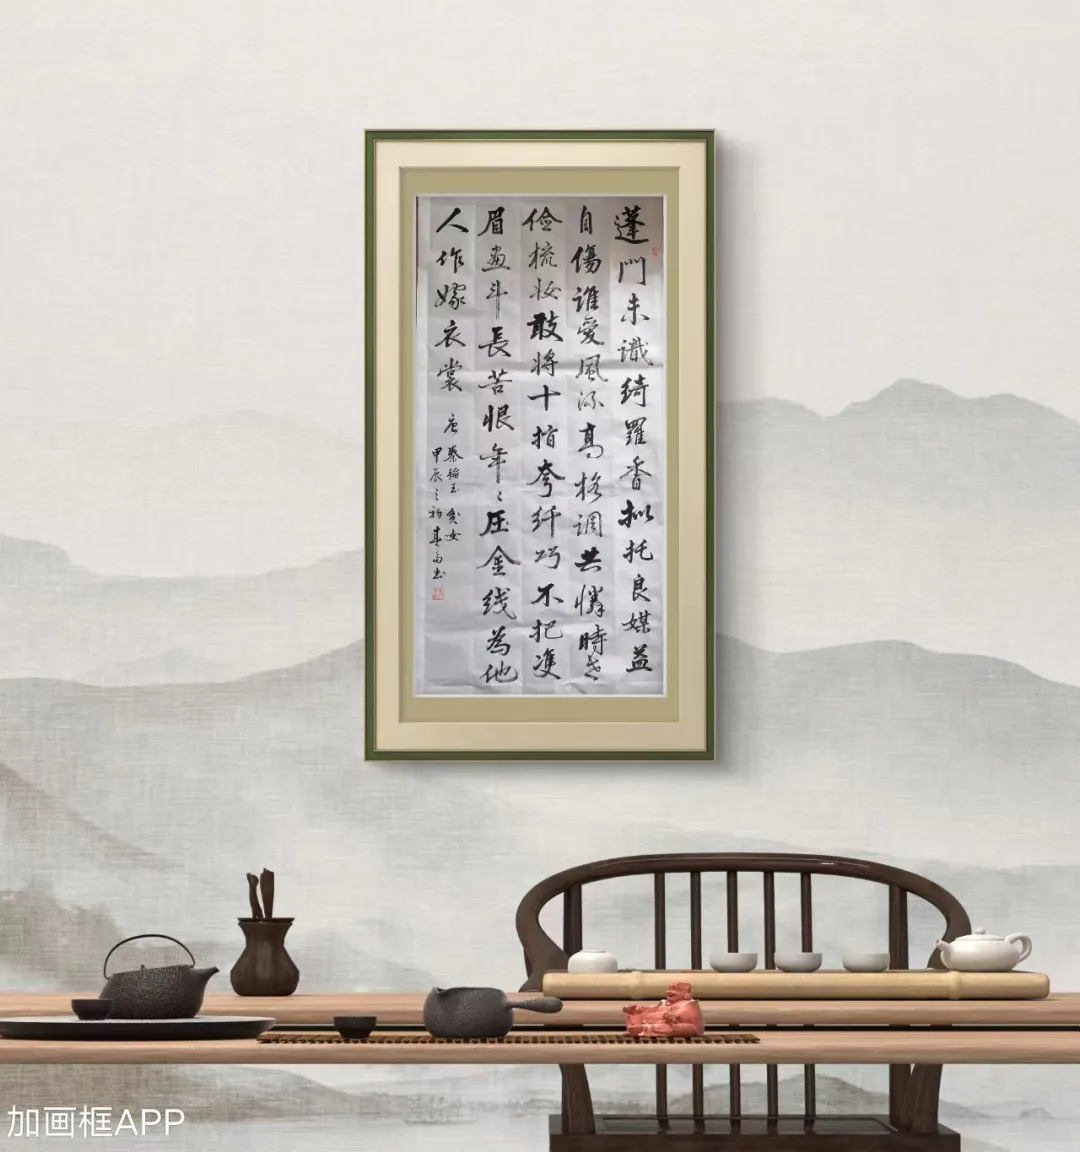 蓬門未識綺羅香拟托良媒益
自傷誰愛風流高格調共憐時世
俭梳妆敢将十指夸纤巧不把雙
眉畫斗長苦恨年々压金线為他
人作嫁衣裳 唐秦韬玉貧女
甲辰之初春书
加画框APP